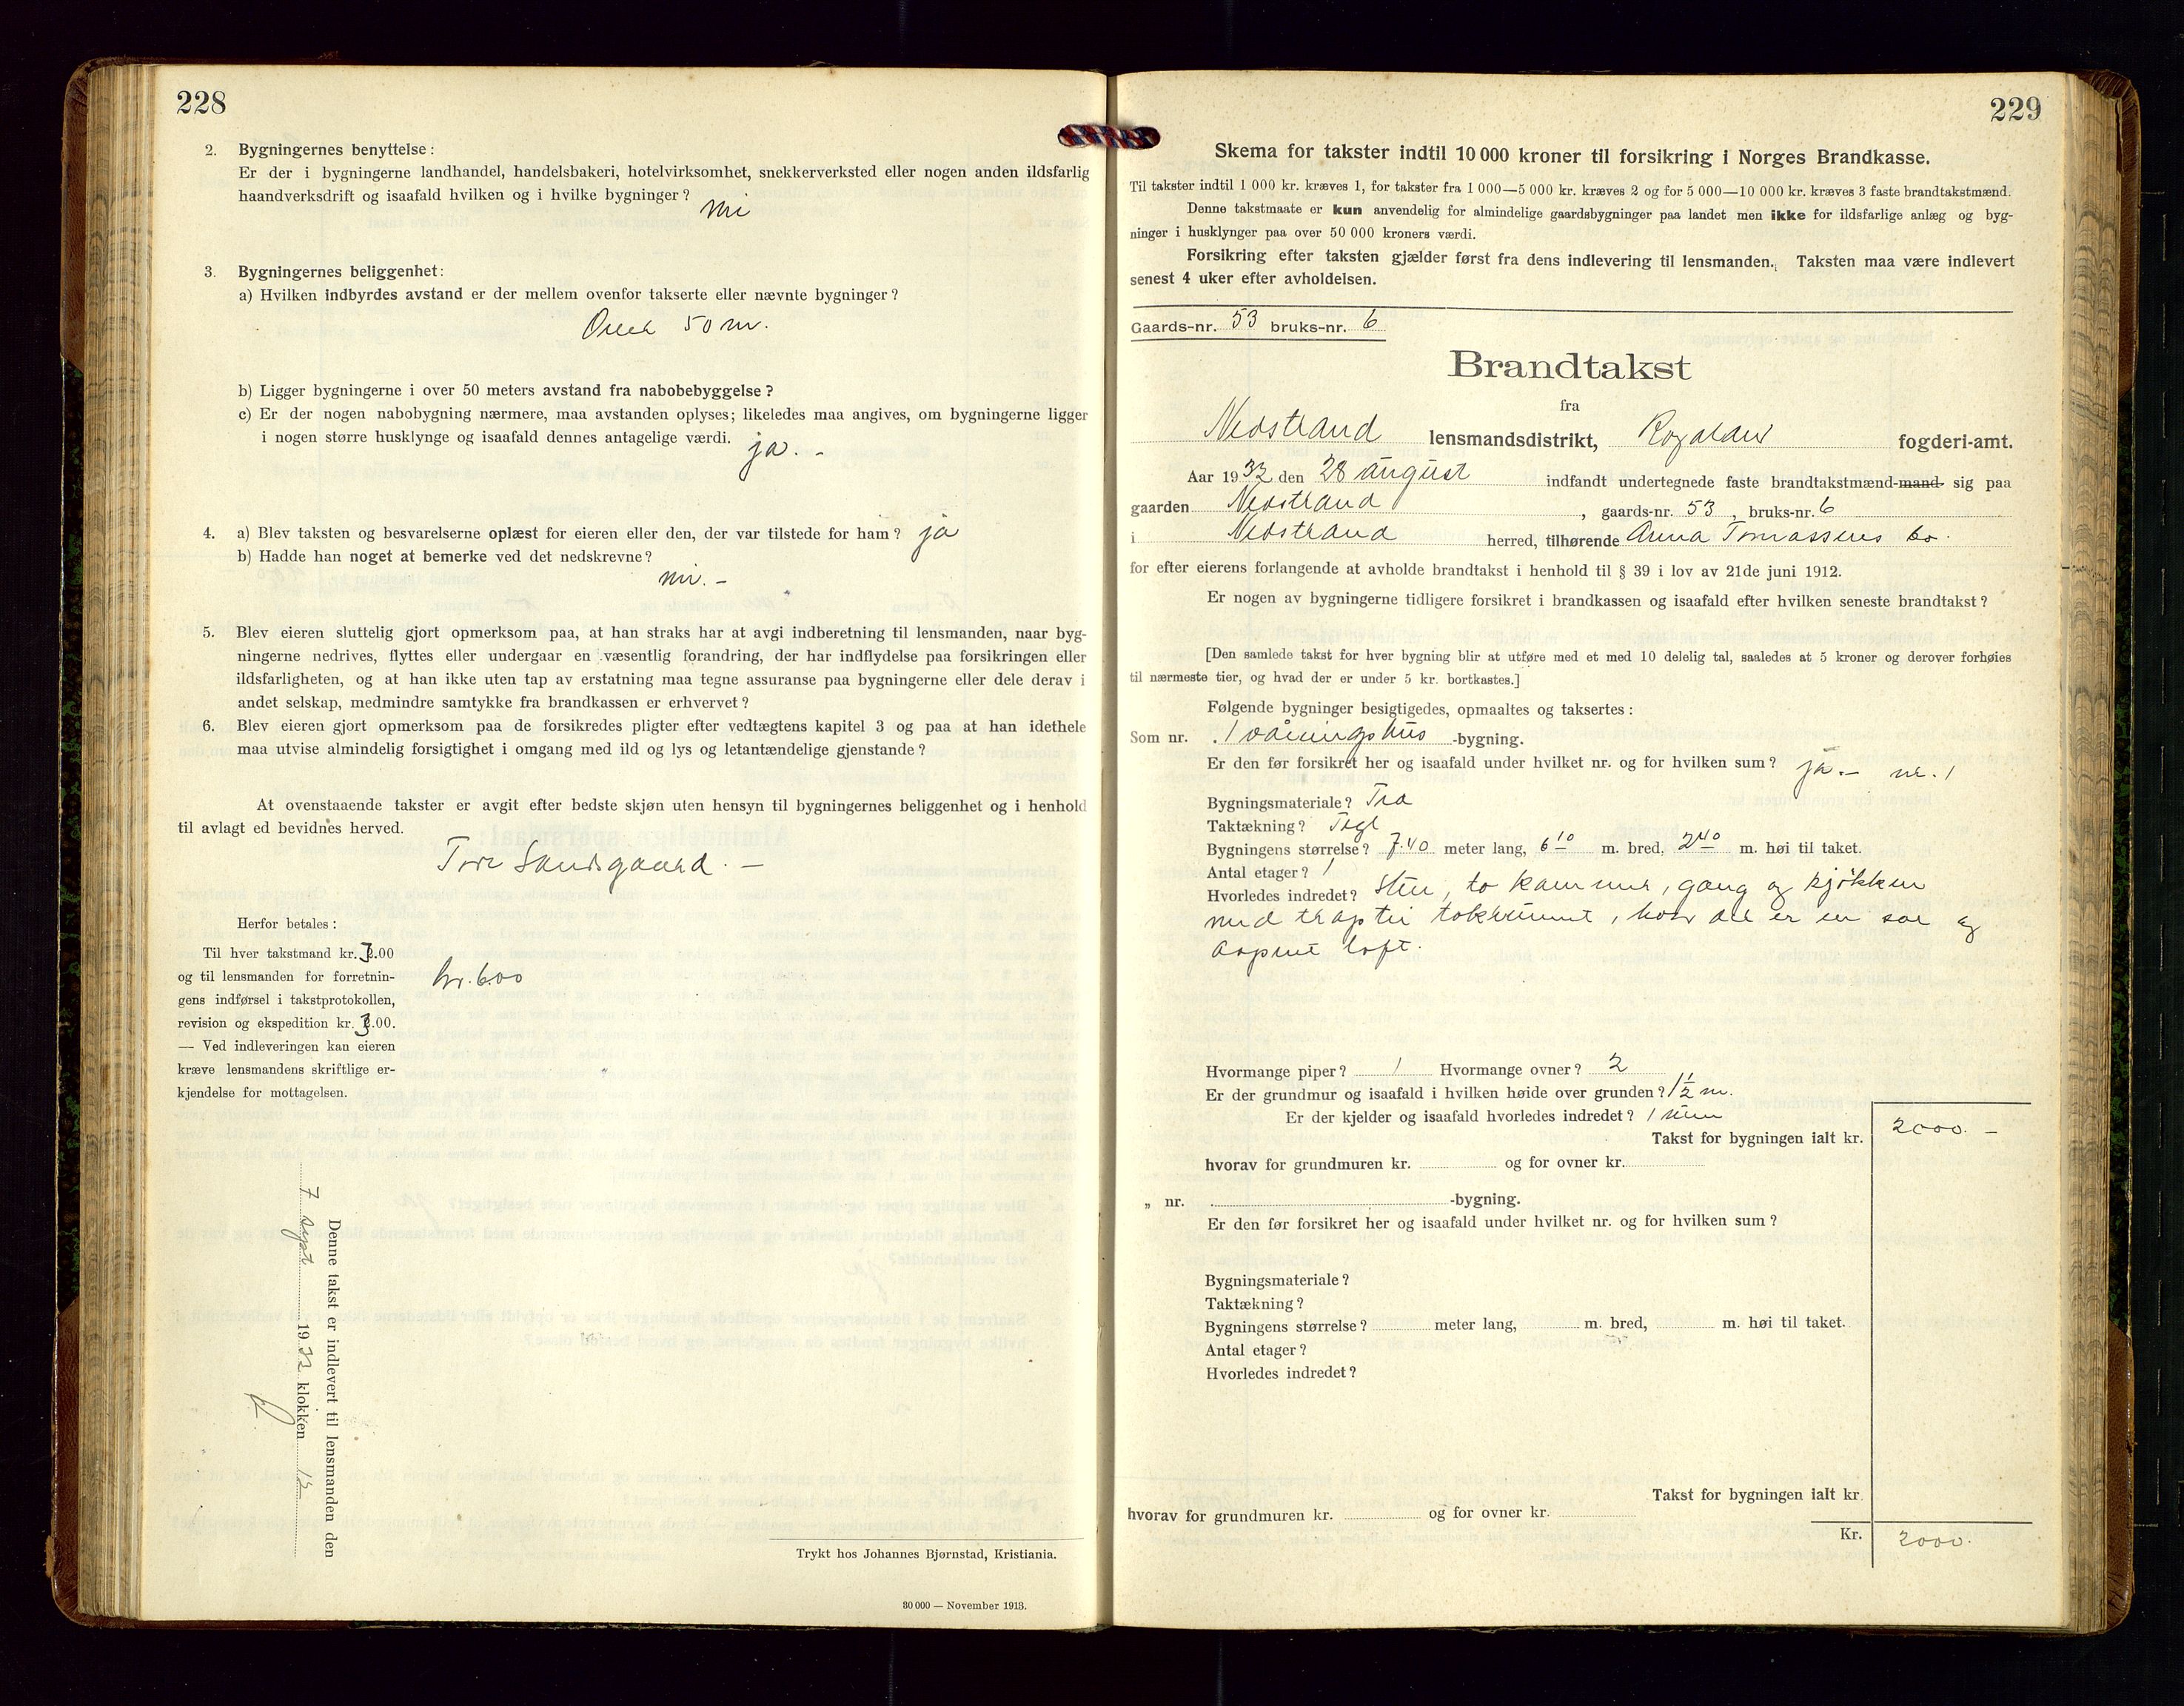 228
2. Bygningernes benyttelse:
Er der i bygningerne landhandel, handelsbakeri, hotelvirksomhet, snekkerverksted eller nogen anden ildsfarlig
haandverksdrift og isaafald hvilken og i hvilke bygninger? nei
3. Bygningernes beliggenhet:
a) Hvilken indbyrdes avstand er der mellem ovenfor takserte eller nævnte bygninger?
Over 50 m.
b) Ligger bygningerne i over 50 meters avstand fra nabobebyggelse?
c) Er der nogen nabobygning nærmere, maa avstanden oplyses; likeledes maa angives, om bygningerne ligger
i nogen større husklynge og isaafald dennes antagelige værdi. ja. -
4. a) Blev taksten og besvarelserne oplæst for eieren eller den, der var tilstede for ham? ja
b) Hadde han noget at bemerke ved det nedskrevne?
nei. -
5. Blev eieren sluttelig gjort opmerksom paa, at han straks har at avgi indberetning til lensmanden, naar byg-
ningerne nedrives, flyttes eller undergaar en væsentlig forandring, der har indflydelse paa forsikringen eller
ildsfarligheten, og at han ikke uten tap av erstatning maa tegne assuranse paa bygningerne eller dele derav i
andet selskap, medmindre samtykke fra brandkassen er erhvervet?
6. Blev eieren gjort opmerksom paa de forsikredes pligter efter vedtægtens kapitel 3 og paa at han idethele
maa utvise almindelig forsigtighet i omgang med ild og lys og letantændelige gjenstande?
At ovenstaaende takster er avgit efter bedste skjøn uten hensyn til bygningernes beliggenhet og i henhold
til avlagt ed bevidnes herved.
Tore Sandsgaard. -
Herfor betales:
Til hver takstmand kr. 3.00
og til lensmanden for forretnin-
gens indførsel i takstprotokollen,
revision og ekspedition kr. 3.00.
— Ved indleveringen kan eieren
kræve lensmandens skriftlige er-
kjendelse for mottagelsen.
kr. 6.00
Denne takst er indlevert til lensmanden den
7 sept 1932 klokken 12
Trykt hos Johannes Bjørnstad, Kristiania.
30 000 — November 1913.
229
Skema for takster indtil 10 000 kroner til forsikring i Norges Brandkasse.
Til takster indtil 1 000 kr. kræves 1, for takster fra 1 000—5 000 kr. kræves 2 og for 5 000—10 000 kr. kræves 3 faste brandtakstmænd.
Denne takstmaate er kun anvendelig for almindelige gaardsbygninger paa landet men ikke for ildsfarlige anlæg og byg-
ninger i husklynger paa over 50 000 kroners værdi.
Forsikring efter taksten gjælder først fra dens indlevering til lensmanden. Taksten maa være indlevert
senest 4 uker efter avholdelsen.
Gaards-nr. 53 bruks-nr. 6
Brandtakst
fra
Nedstrand lensmandsdistrikt, Rogaland fogderi-amt.
Aar 1932 den 28 august indfandt undertegnede faste brandtakstmænd-mand- sig paa
gaarden Nedstrand, gaards-nr. 53, bruks-nr. 6
i Nedstrand herred, tilhørende Anna Tomassens bo.
for efter eierens forlangende at avholde brandtakst i henhold til § 39 i lov av 21de juni 1912.
Er nogen av bygningerne tidligere forsikret i brandkassen og isaafald efter hvilken seneste brandtakst?
[Den samlede takst for hver bygning blir at utføre med et med 10 delelig tal, saaledes at 5 kroner og derover forhøies
til nærmeste tier, og hvad der er under 5 kr. bortkastes.]
Følgende bygninger besigtigedes, opmaaltes og taksertes:
Som nr. 1 våningshus -bygning.
Er den før forsikret her og isaafald under hvilket nr. og for hvilken sum? ja. - nr. 1
Bygningsmateriale? Tra
Taktækning? Tegl
Bygningens størrelse? 7.40 meter lang, 6 10 m. bred, 2 40 m. høi til taket.
Antal etager? 1
Hvorledes indredet? Stue, to kammer, gang og kjøkken
med trap til takrummet, hvor det er en sal og
aapent loft.
Hvormange piper? 1 Hvormange ovner? 2
Er der grundmur og isaafald i hvilken høide over grunden? 1 1/2 m.
Er der kjelder og isaafald hvorledes indredet? 1 rum
Takst for bygningen ialt kr. 2000. -
hvorav for grundmuren kr. og for ovner kr.
„ nr. -bygning.
Er den før forsikret her og isaafald under hvilket nr. og for hvilken sum?
Bygningsmateriale?
Taktækning?
Bygningens størrelse? meter lang, m. bred, m. høi til taket.
Antal etager?
Hvorledes indredet?
Takst for bygningen ialt kr.
hvorav for grundmuren kr. og for ovner kr.
Kr. 2000.